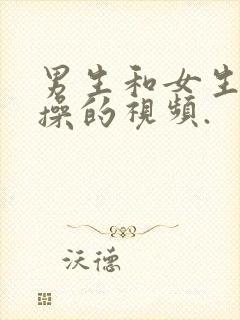 男生和女生
操的視頻.
沃德